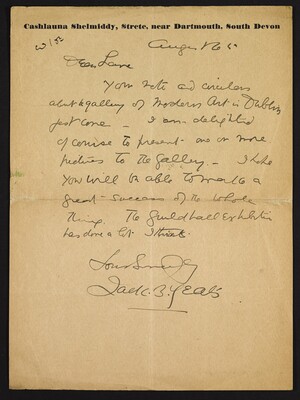 Cashlauna Shelmiddy, Strete, near Dartmouth, South Devon
August 6
Dear Lane
Your note and circulars
about gallery of Modern Art in Dublin
just come - I am delighted
of course to present one or more
pictures to the gallery. - I hope
you will be able to make a
great success of the whole
thing. The Guildhall Exhibition
has done a lot I think.
Yours Sincerely
Jack. B. Yeats